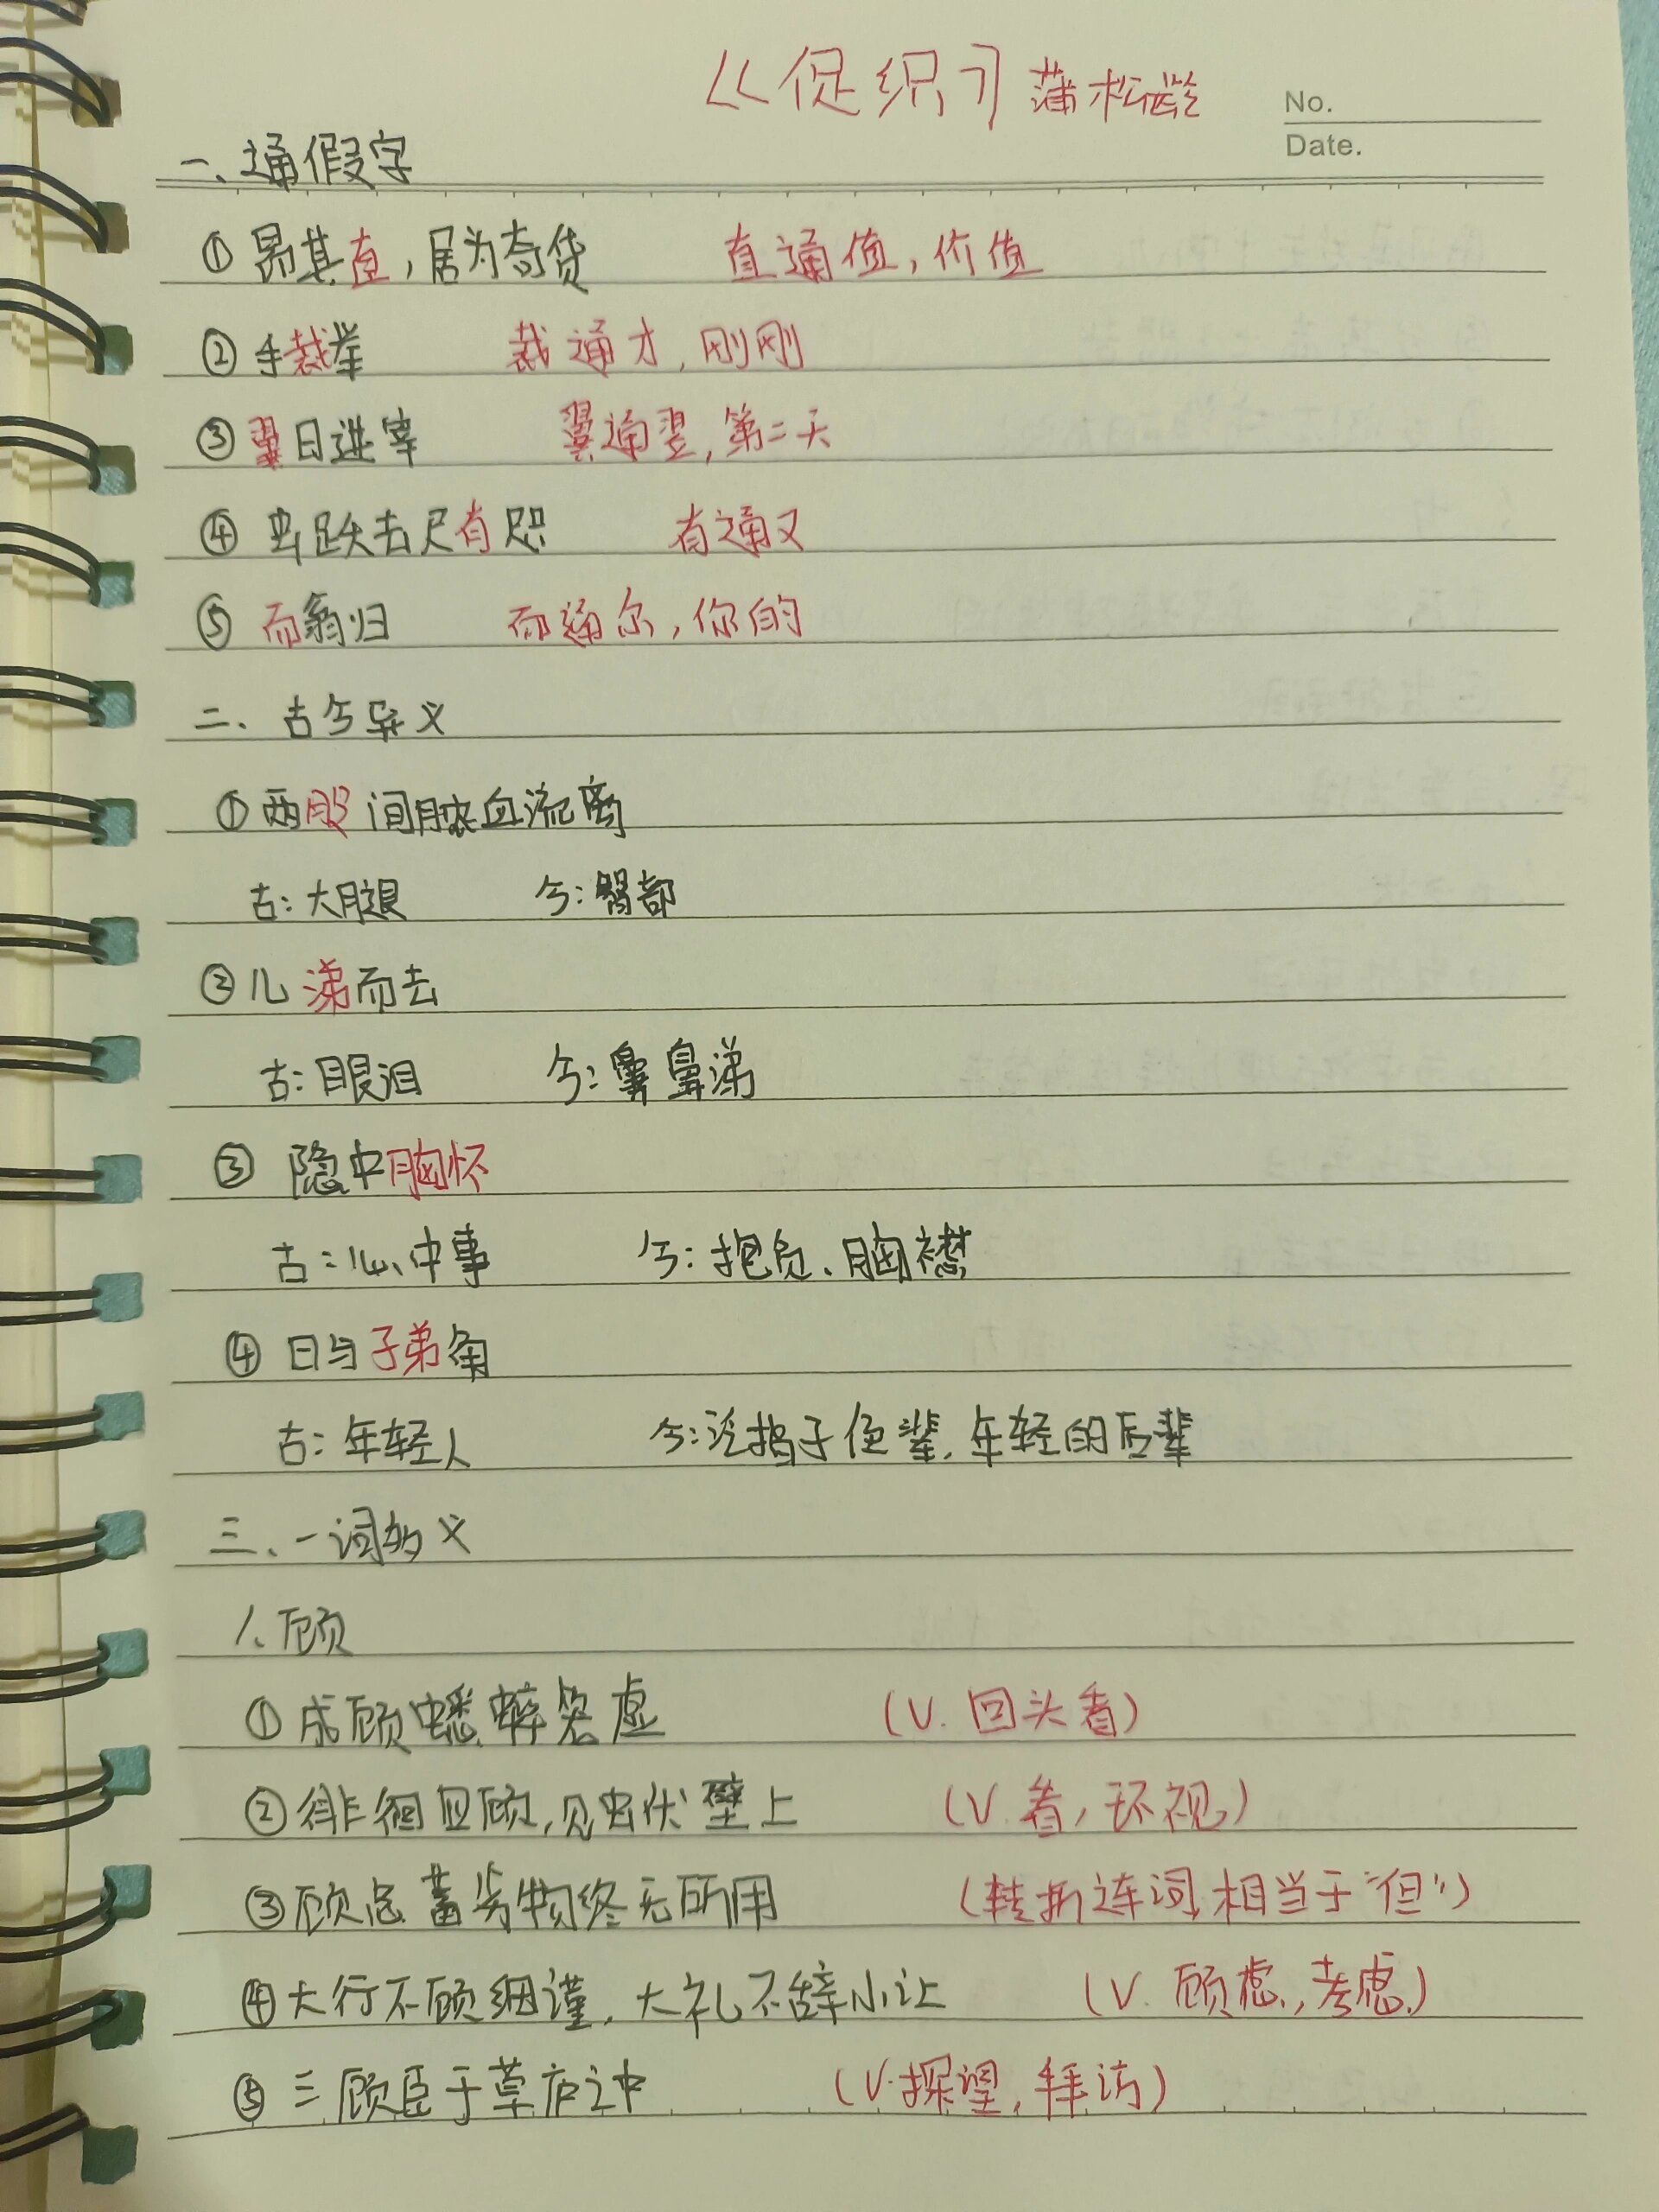 《促织》蒲松龄
No.
Date.
一、通假字
①昂其直，居为奇货 直通值，价值
②手裁举 裁通才，刚刚
③翼日进宰 翼通翌，第二天
④虫跃去尺有咫 有通又
⑤而翁归 而通尔，你的
二、古今异义
①两股间脓血流离
古：大腿 今：臀部
②儿涕而去
古：眼泪 今：鼻涕
③隐中胸怀
古：心中事 今：抱负、胸襟
④日与子弟角
古：年轻人 今：泛指子侄辈，年轻的后辈
三、一词多义
1、顾
①成顾蟋蟀笼虚 （V. 回头看）
②徘徊四顾，见虫伏壁上 （V. 看，环视）
③顾念蓄劣物终无所用 （转折连词，相当于“但”）
④大行不顾细谨，大礼不辞小让 （V. 顾虑，考虑）
⑤三顾臣于草庐之中 （V. 探望，拜访）